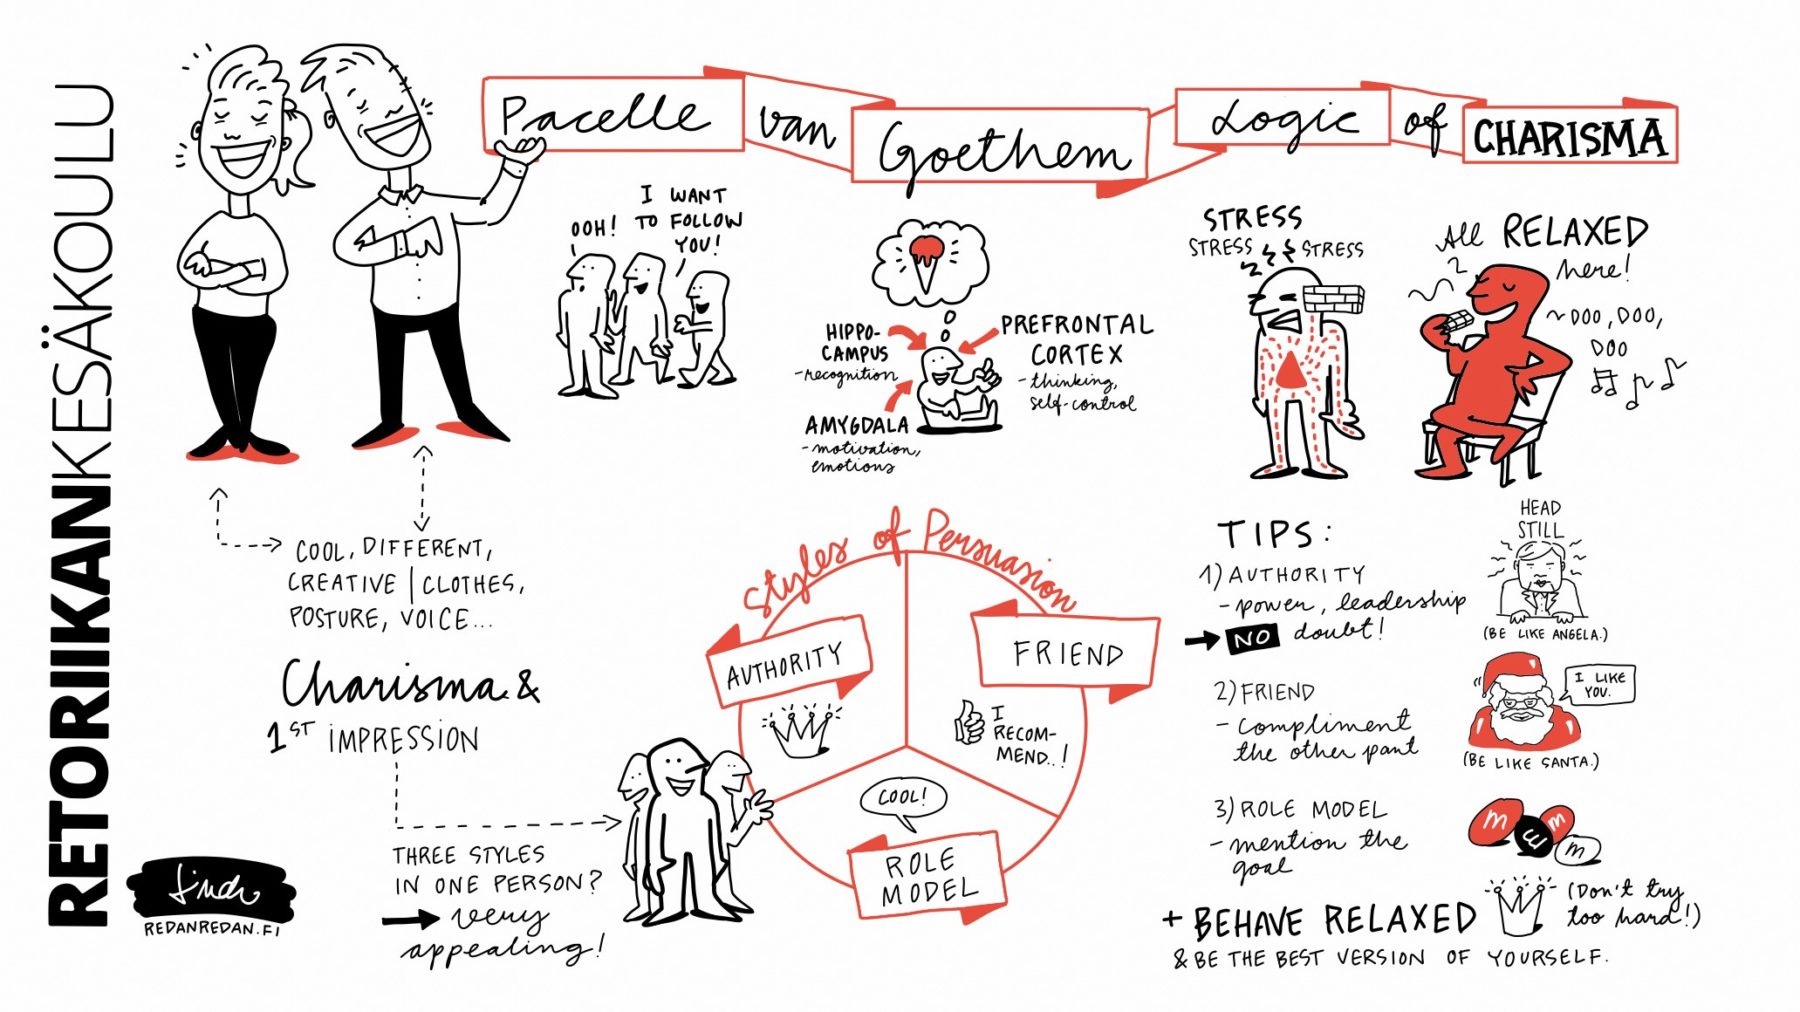 RETORIIKANKESÄKOULU
Pacelle van Goethem Logic of CHARISMA
OOH!
I WANT
TO FOLLOW
YOU!
HIPPO-
CAMPUS
-recognition
AMYGDALA
-motivation,
emotions
PREFRONTAL
CORTEX
-thinking,
self-control
STRESS
STRESS STRESS
All RELAXED
here!
~DOO, DOO,
DOO
COOL, DIFFERENT,
CREATIVE | CLOTHES,
POSTURE, VOICE...
Charisma &
1ST IMPRESSION
THREE STYLES
IN ONE PERSON?
→ very
appealing!
Styles of Persuasion
AUTHORITY
FRIEND
I
RECOM-
MEND..!
COOL!
ROLE
MODEL
TIPS:
1) AUTHORITY
-power, leadership
→ NO doubt!
HEAD
STILL
(BE LIKE ANGELA.)
2) FRIEND
-compliment
the other part
I LIKE
YOU.
(BE LIKE SANTA.)
3) ROLE MODEL
-mention the
goal
m m m m
+ BEHAVE RELAXED
(Don't try
too hard!)
& BE THE BEST VERSION OF YOURSELF.
REDANREDAN.FI